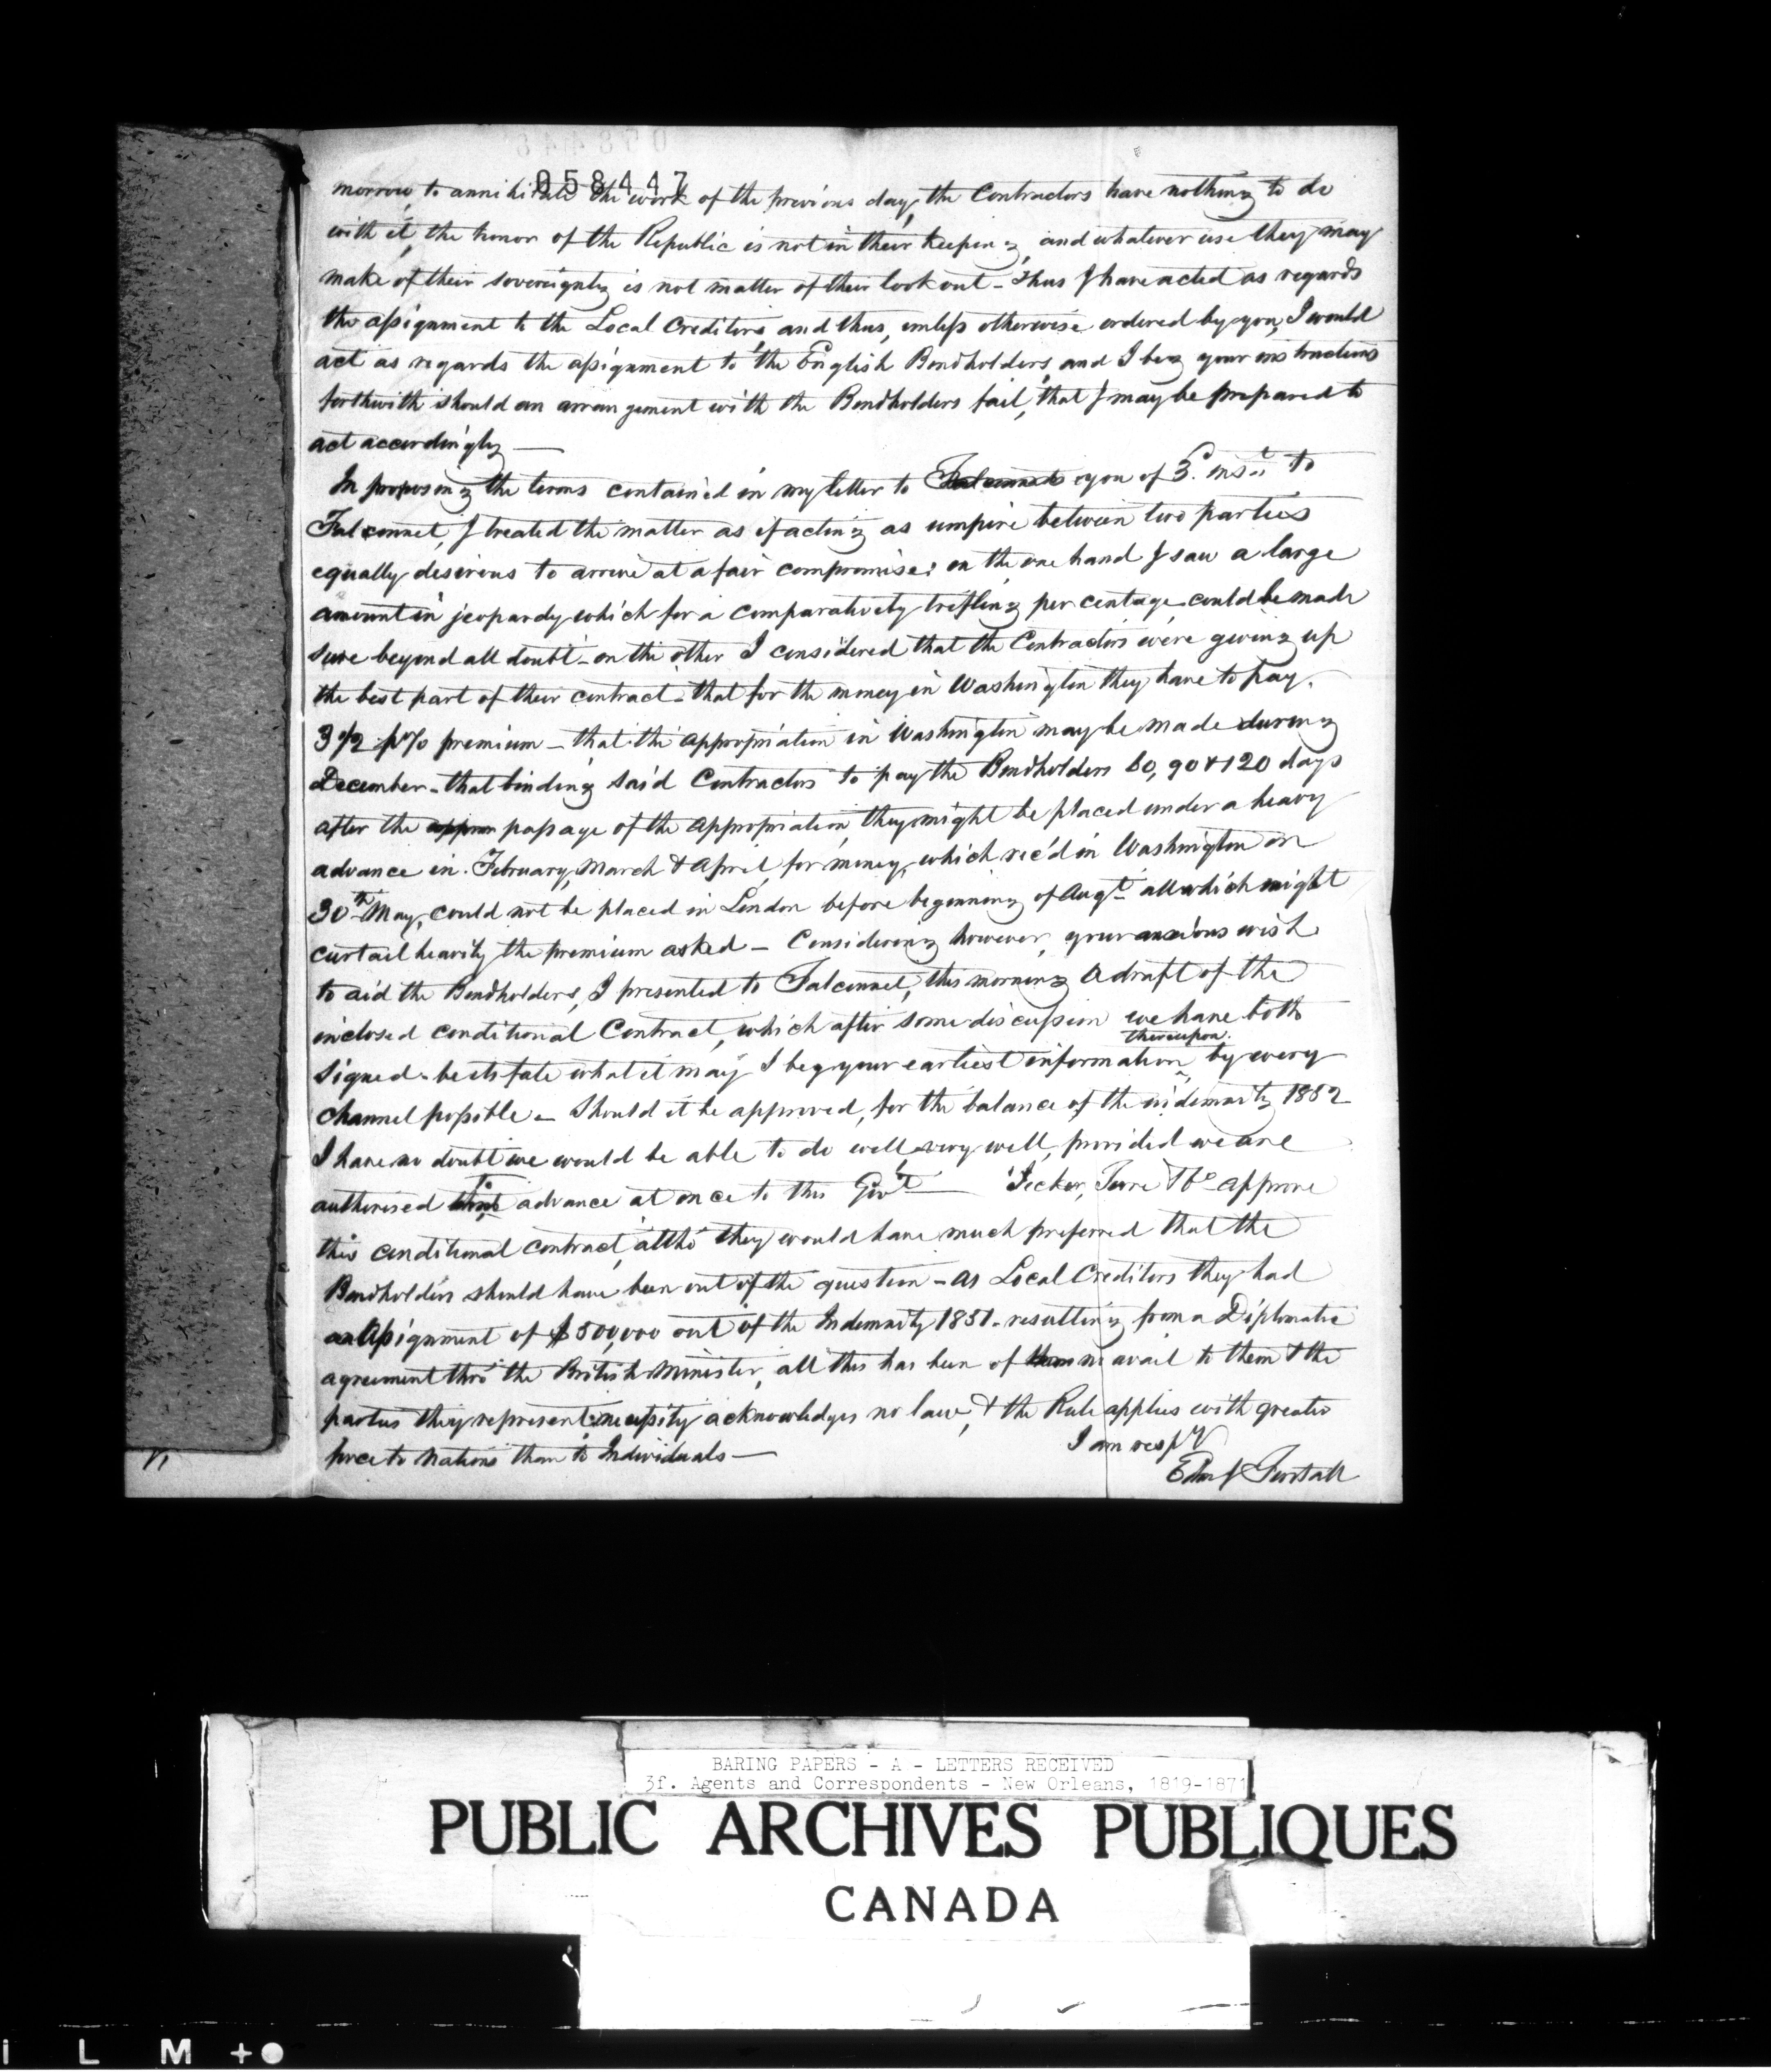 058447
morrow, to annihilate the work of the previous day, the Contractors have nothing to do
with it, the honor of the Republic is not in their keeping, and whatever use they may
make of their sovereignty is not matter of their look out - Thus I have acted as regards
the assignment to the Local Creditors, and thus, unless otherwise ordered by you, I would
act as regards the assignment to the English Bondholders, and I beg your instructions
forthwith should an arrangement with the Bondholders fail, that I may be prepared to
act accordingly —
In proposing the terms contained in my letter to Falconnet you of 3d inst. to
Falconnet, I treated the matter as if acting as umpire between two parties
equally desirous to arrive at a fair compromise: on the one hand I saw a large
amount in jeopardy which for a comparatively trifling per centage could be made
sure beyond all doubt - on the other I considered that the Contractors were giving up
the best part of their contract - that for the money in Washington they have to pay
3 1/2 p% premium - that the appropriation in Washington may be made during
December - that binding said Contractors to pay the Bondholders 60, 90 & 120 days
after the appro passage of the appropriation, they might be placed under a heavy
advance in February, March & April, for money, which rec'd in Washington on
30th May, could not be placed in London before beginning of Augt. all which might
curtail heavily the premium asked - Considering however, your anxious wish
to aid the Bondholders, I presented to Falconnet, this morning a draft of the
inclosed conditional Contract, which after some discussion we have both
thereupon.
signed - be its fate what it may I beg your earliest information by every
channel possible - Should it be approved, for the balance of the indemnity 1852
I have no doubt we would be able to do well, very well, provided we are
authorised to advance at once to this Govt. — Jecker, Torre & Co. approve
this conditional contract, altho' they would have much preferred that the
Bondholders should have been out of the question - as Local Creditors they had
an Assignment of $500,000 out of the Indemnity 1851 - resulting from a Diplomatic
agreement thro' the British Minister, all this has been of no avail to them & the
parties they represent; necessity acknowledges no law, & the Rule applies with greater
force to Nations than to Individuals —
I am respy
Edm J Forstall
BARING PAPERS - A - LETTERS RECEIVED
3f. Agents and Correspondents - New Orleans, 1819-1871
PUBLIC ARCHIVES PUBLIQUES
CANADA
L M +